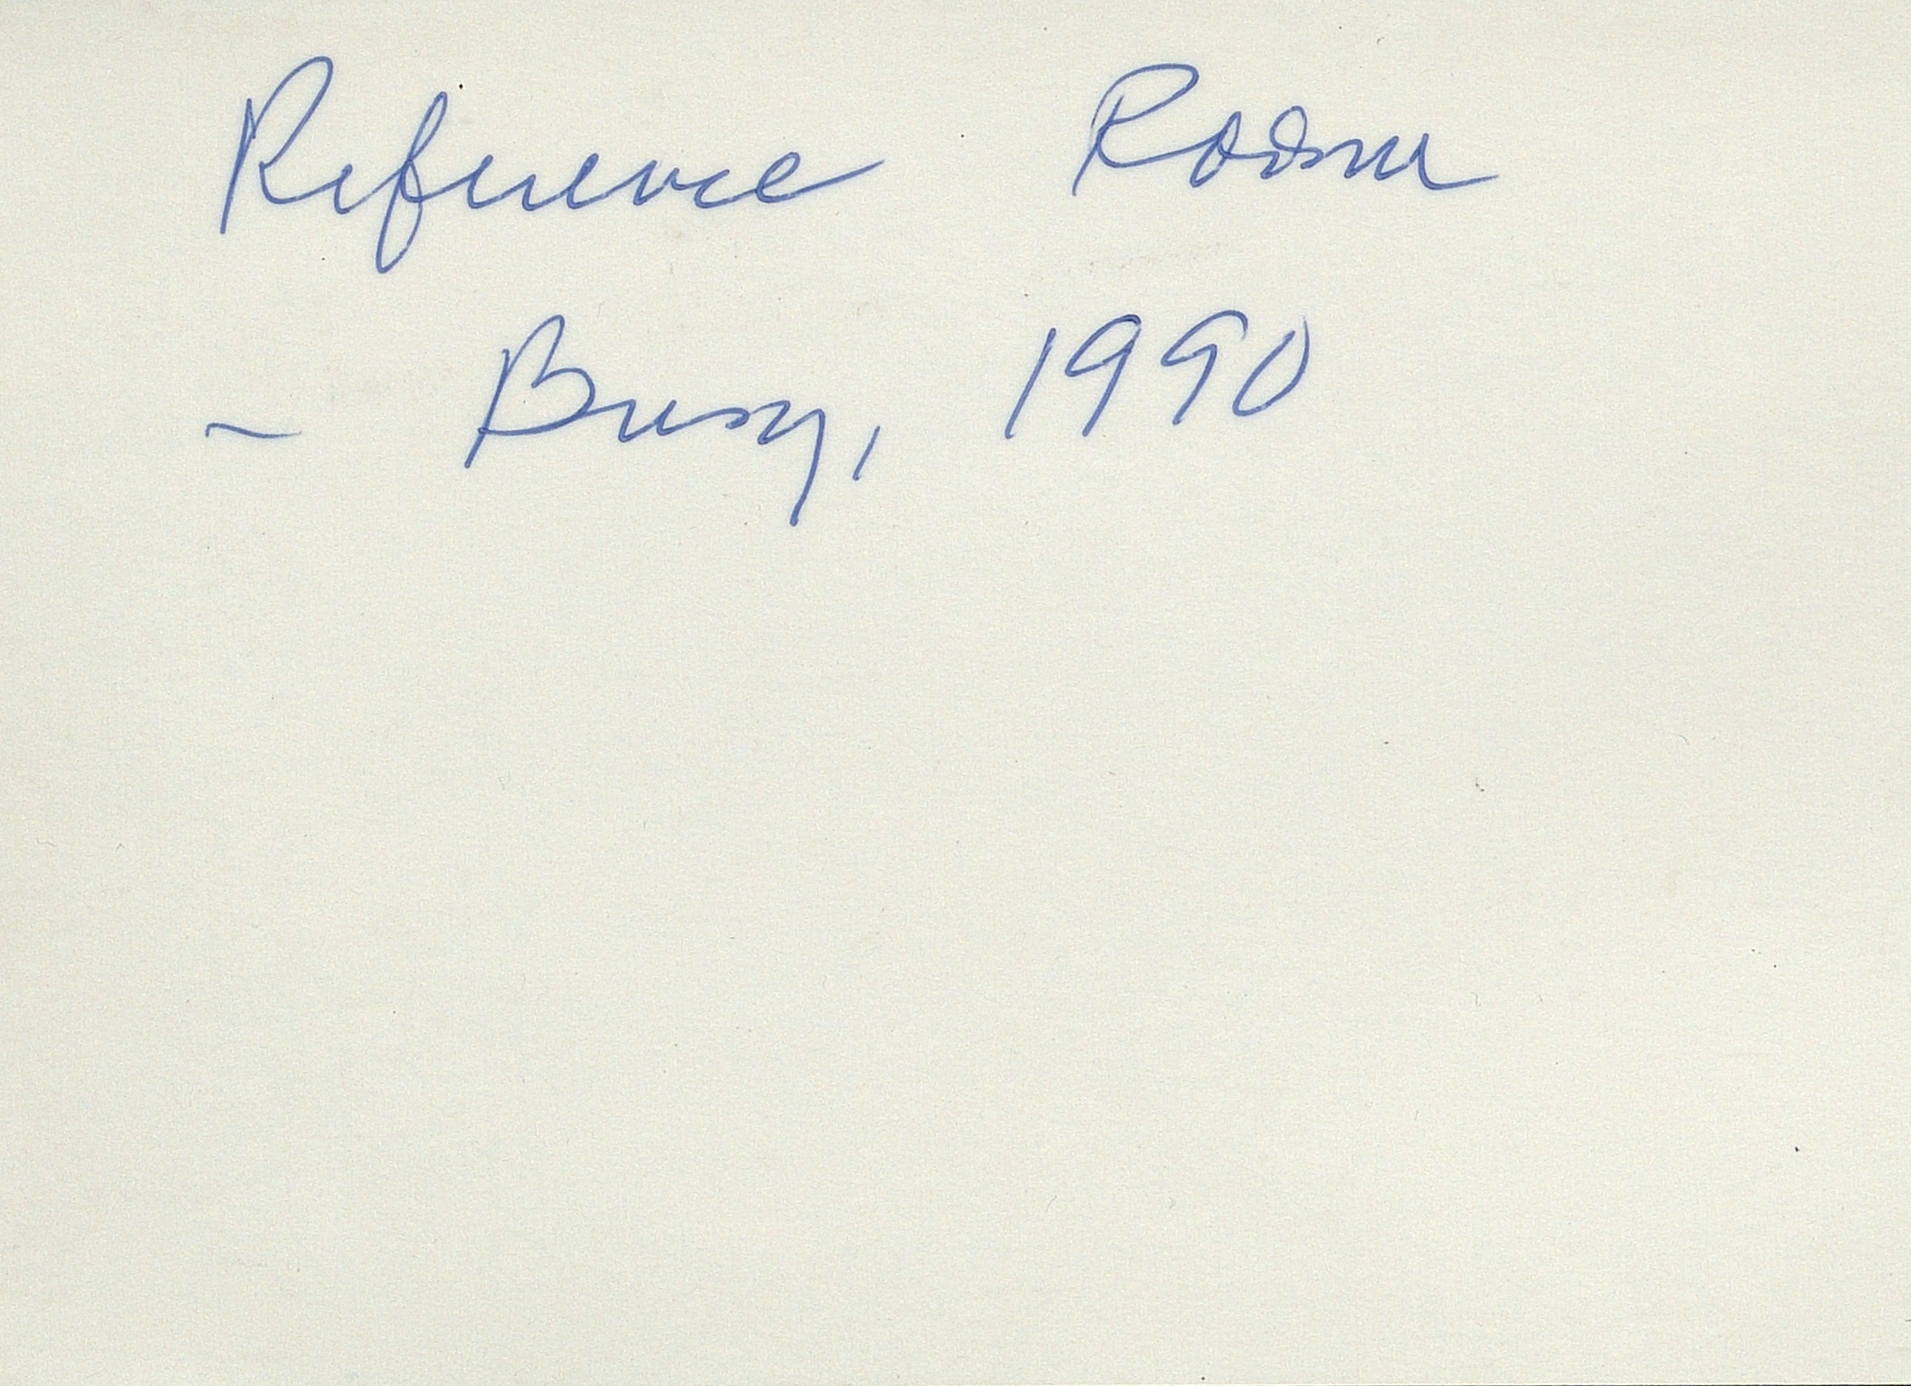 Reference Room
- Busy, 1990